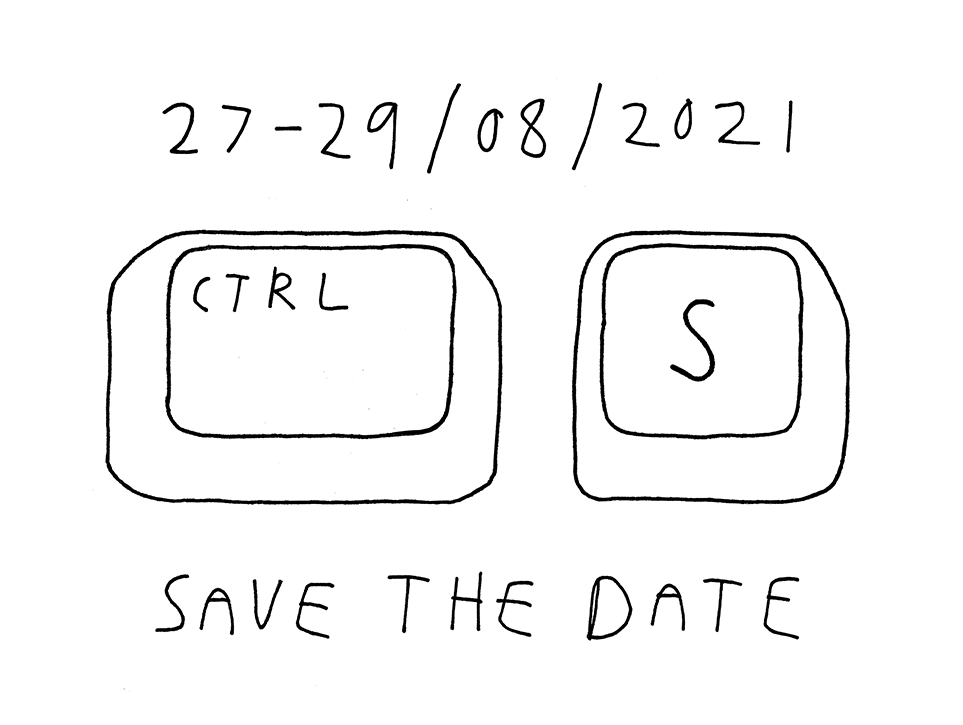 27-29/08/2021
CTRL
S
SAVE THE DATE